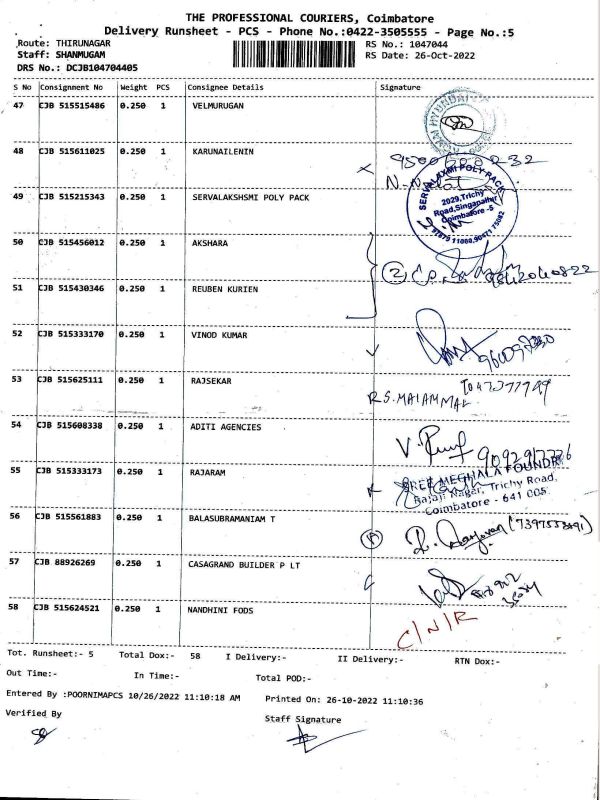 THE PROFESSIONAL COURIERS, Coimbatore
Delivery Runsheet - PCS - Phone No.:0422-3505555 - Page No.:5
Route: THIRUNAGAR RS No.: 1047044
Staff: SHANMUGAM RS Date: 26-Oct-2022
DRS No.: DCJB104704405
S No Consignment No Weight PCS Consignee Details Signature
47 CJB 515515486 0.250 1 VELMURUGAN
48 CJB 515611025 0.250 1 KARUNAILENIN
49 CJB 515215343 0.250 1 SERVALAKSHSMI POLY PACK
SERVALAXMI POLY PACK
2029, Trichy
Road, Singanallur
Coimbatore -5
50 CJB 515456012 0.250 1 AKSHARA
51 CJB 515430346 0.250 1 REUBEN KURIEN
52 CJB 515333170 0.250 1 VINOD KUMAR
53 CJB 515625111 0.250 1 RAJSEKAR
RS.MAIAMMAL
54 CJB 515608338 0.250 1 ADITI AGENCIES
55 CJB 515333173 0.250 1 RAJARAM
SREE MEGHALA FOUNDRY
Rajaji Nagar, Trichy Road,
Coimbatore - 641 005
56 CJB 515561883 0.250 1 BALASUBRAMANIAM T
57 CJB 88926269 0.250 1 CASAGRAND BUILDER P LT
58 CJB 515624521 0.250 1 NANDHINI FODS
C/N/R
Tot. Runsheet:- 5 Total Dox:- 58 I Delivery:- II Delivery:- RTN Dox:-
Out Time:- In Time:- Total POD:-
Entered By :POORNIMAPCS 10/26/2022 11:10:18 AM Printed On: 26-10-2022 11:10:36
Verified By Staff Signature